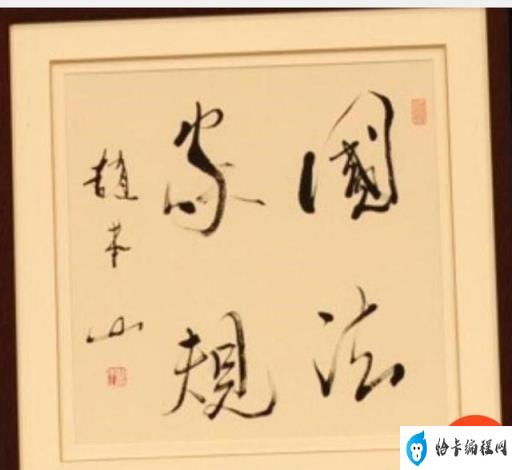 國法
家規
趙本山
恰卡编程网